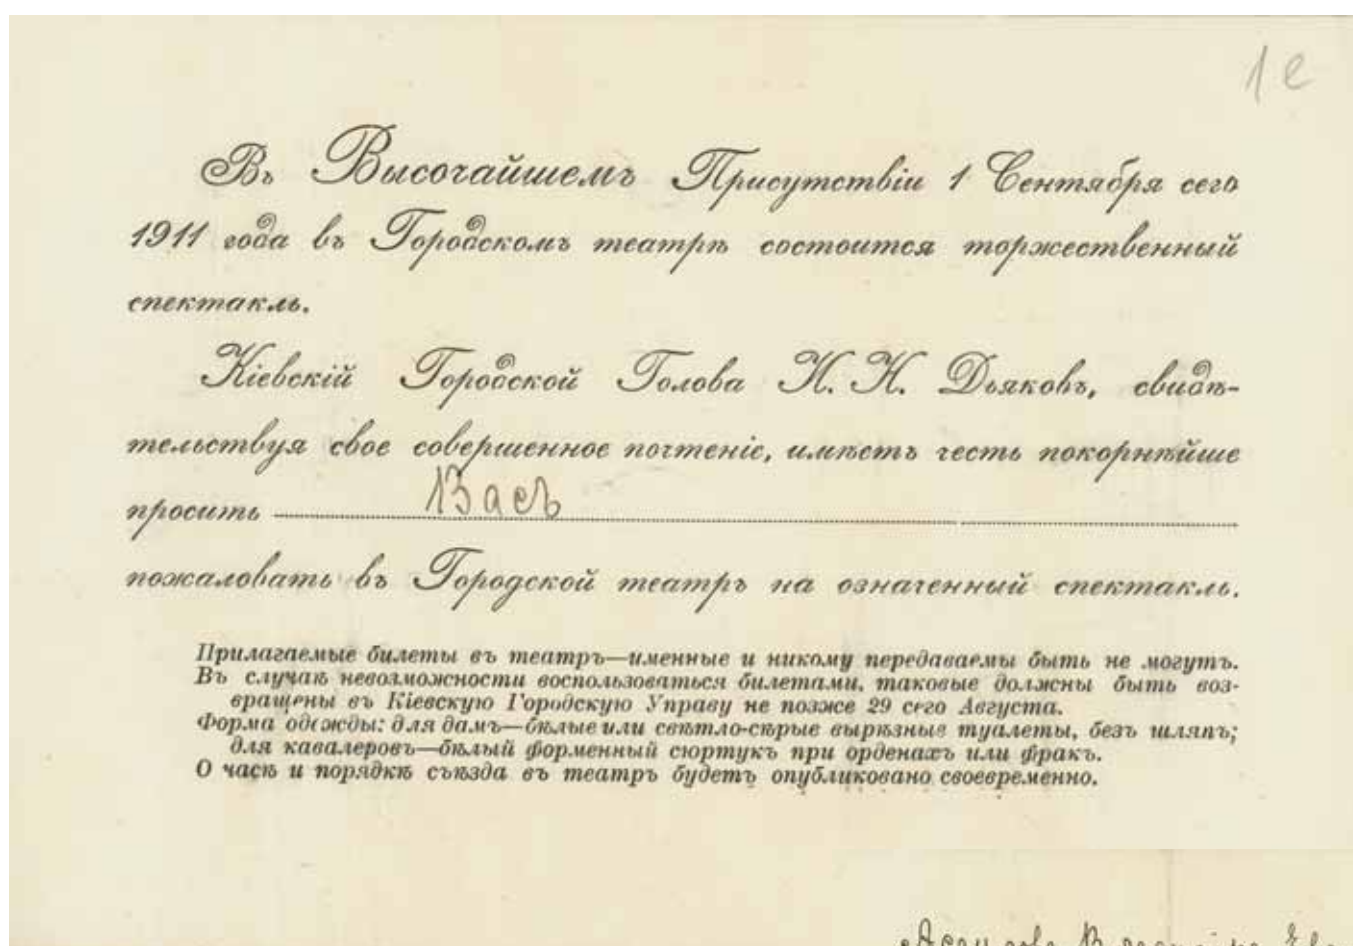 1 е
Въ Высочайшемъ Присутствіи 1 Сентября сего
1911 года въ Городскомъ театрѣ состоится торжественный
спектакль.
Кіевскій Городской Голова И. Н. Дьяковъ, свидѣ-
тельствуя свое совершенное почтеніе, имѣетъ честь покорнѣйше
просить Васъ
пожаловать въ Городской театръ на означенный спектакль.
Прилагаемые билеты въ театръ—именные и никому передаваемы быть не могутъ.
Въ случаѣ невозможности воспользоваться билетами, таковые должны быть воз-
вращены въ Кіевскую Городскую Управу не позже 29 сего Августа.
Форма одежды: для дамъ—бѣлые или свѣтло-сѣрые вырѣзные туалеты, безъ шляпъ;
для кавалеровъ—бѣлый форменный сюртукъ при орденахъ или фракъ.
О часѣ и порядкѣ съѣзда въ театръ будетъ опубликовано своевременно.